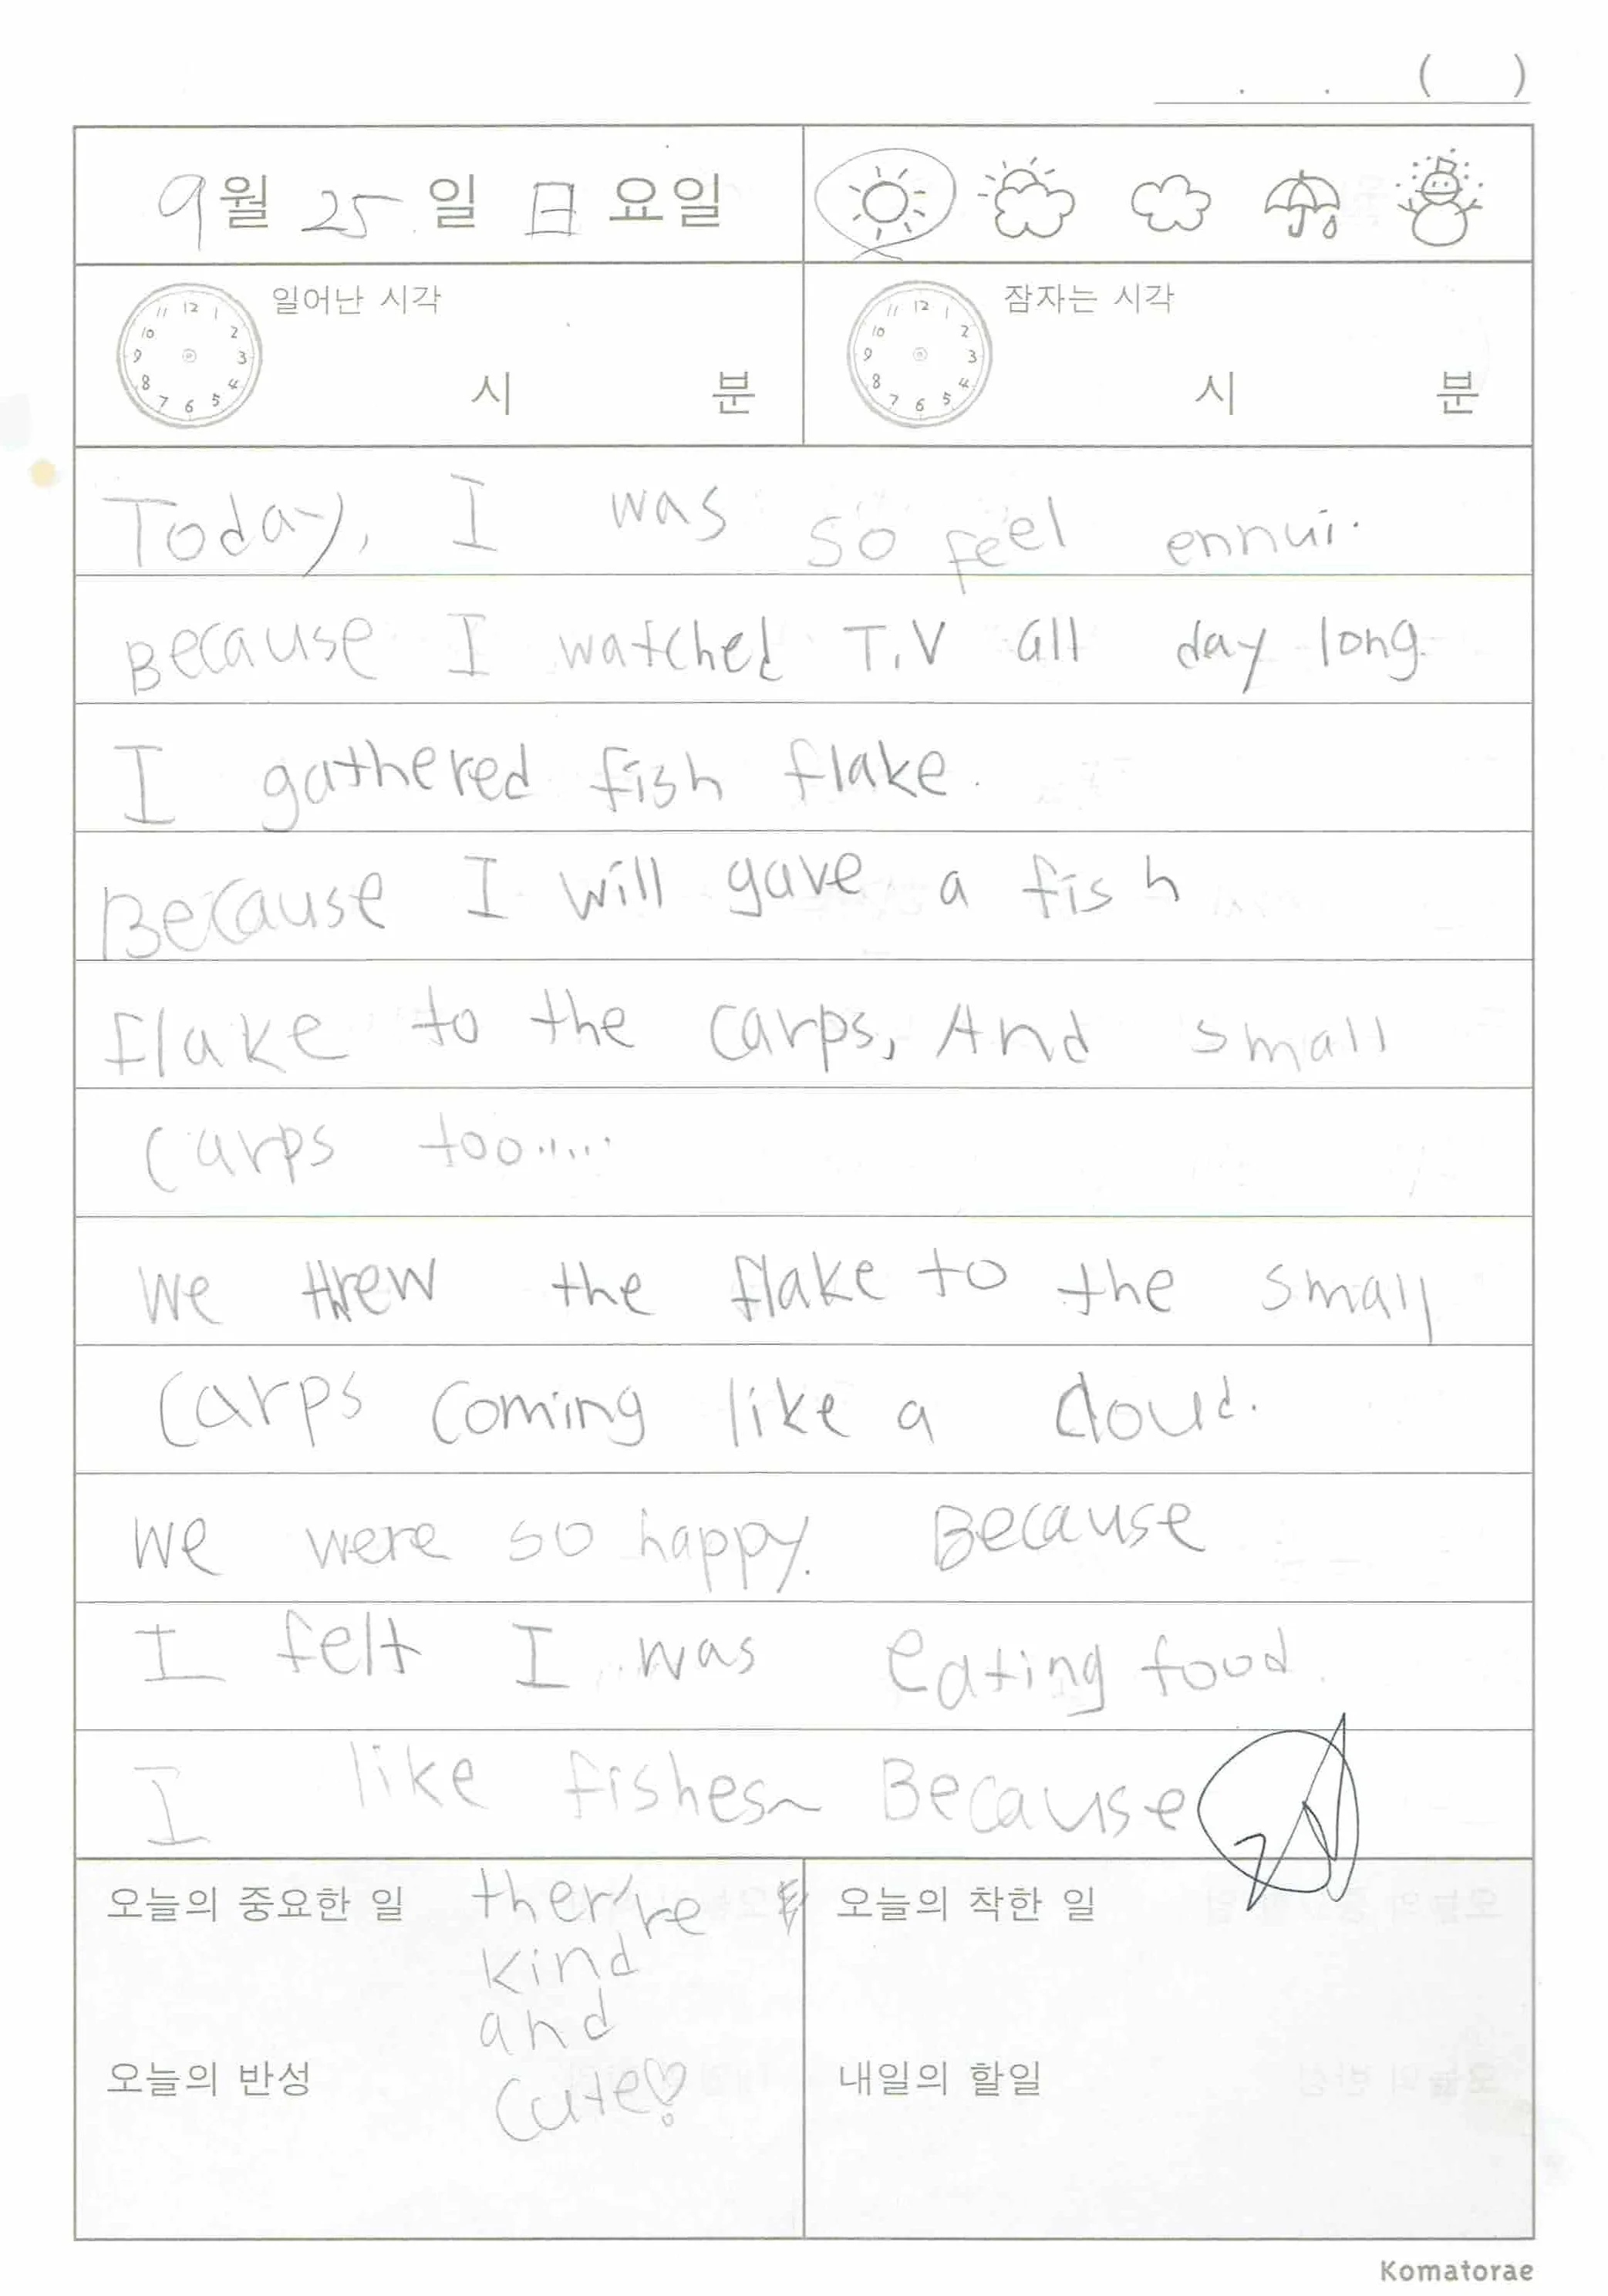 . . ( )
9월 25일 日요일
일어난 시각
12 1 2 3 4 5 6 7 8 9 10 11
시 분
잠자는 시각
12 1 2 3 4 5 6 7 8 9 10 11
시 분
Today, I was so feel ennui.
Because I watched T.V all day long.
I gathered fish flake.
Because I will gave a fish
flake to the carps, And small
carps too.....
We threw the flake to the small
carps coming like a cloud.
We were so happy. Because
I felt I was eating food.
I like fishes~ Because
오늘의 중요한 일
ther're
kind
and
cute♡
오늘의 착한 일
오늘의 반성
내일의 할일
Komatorae